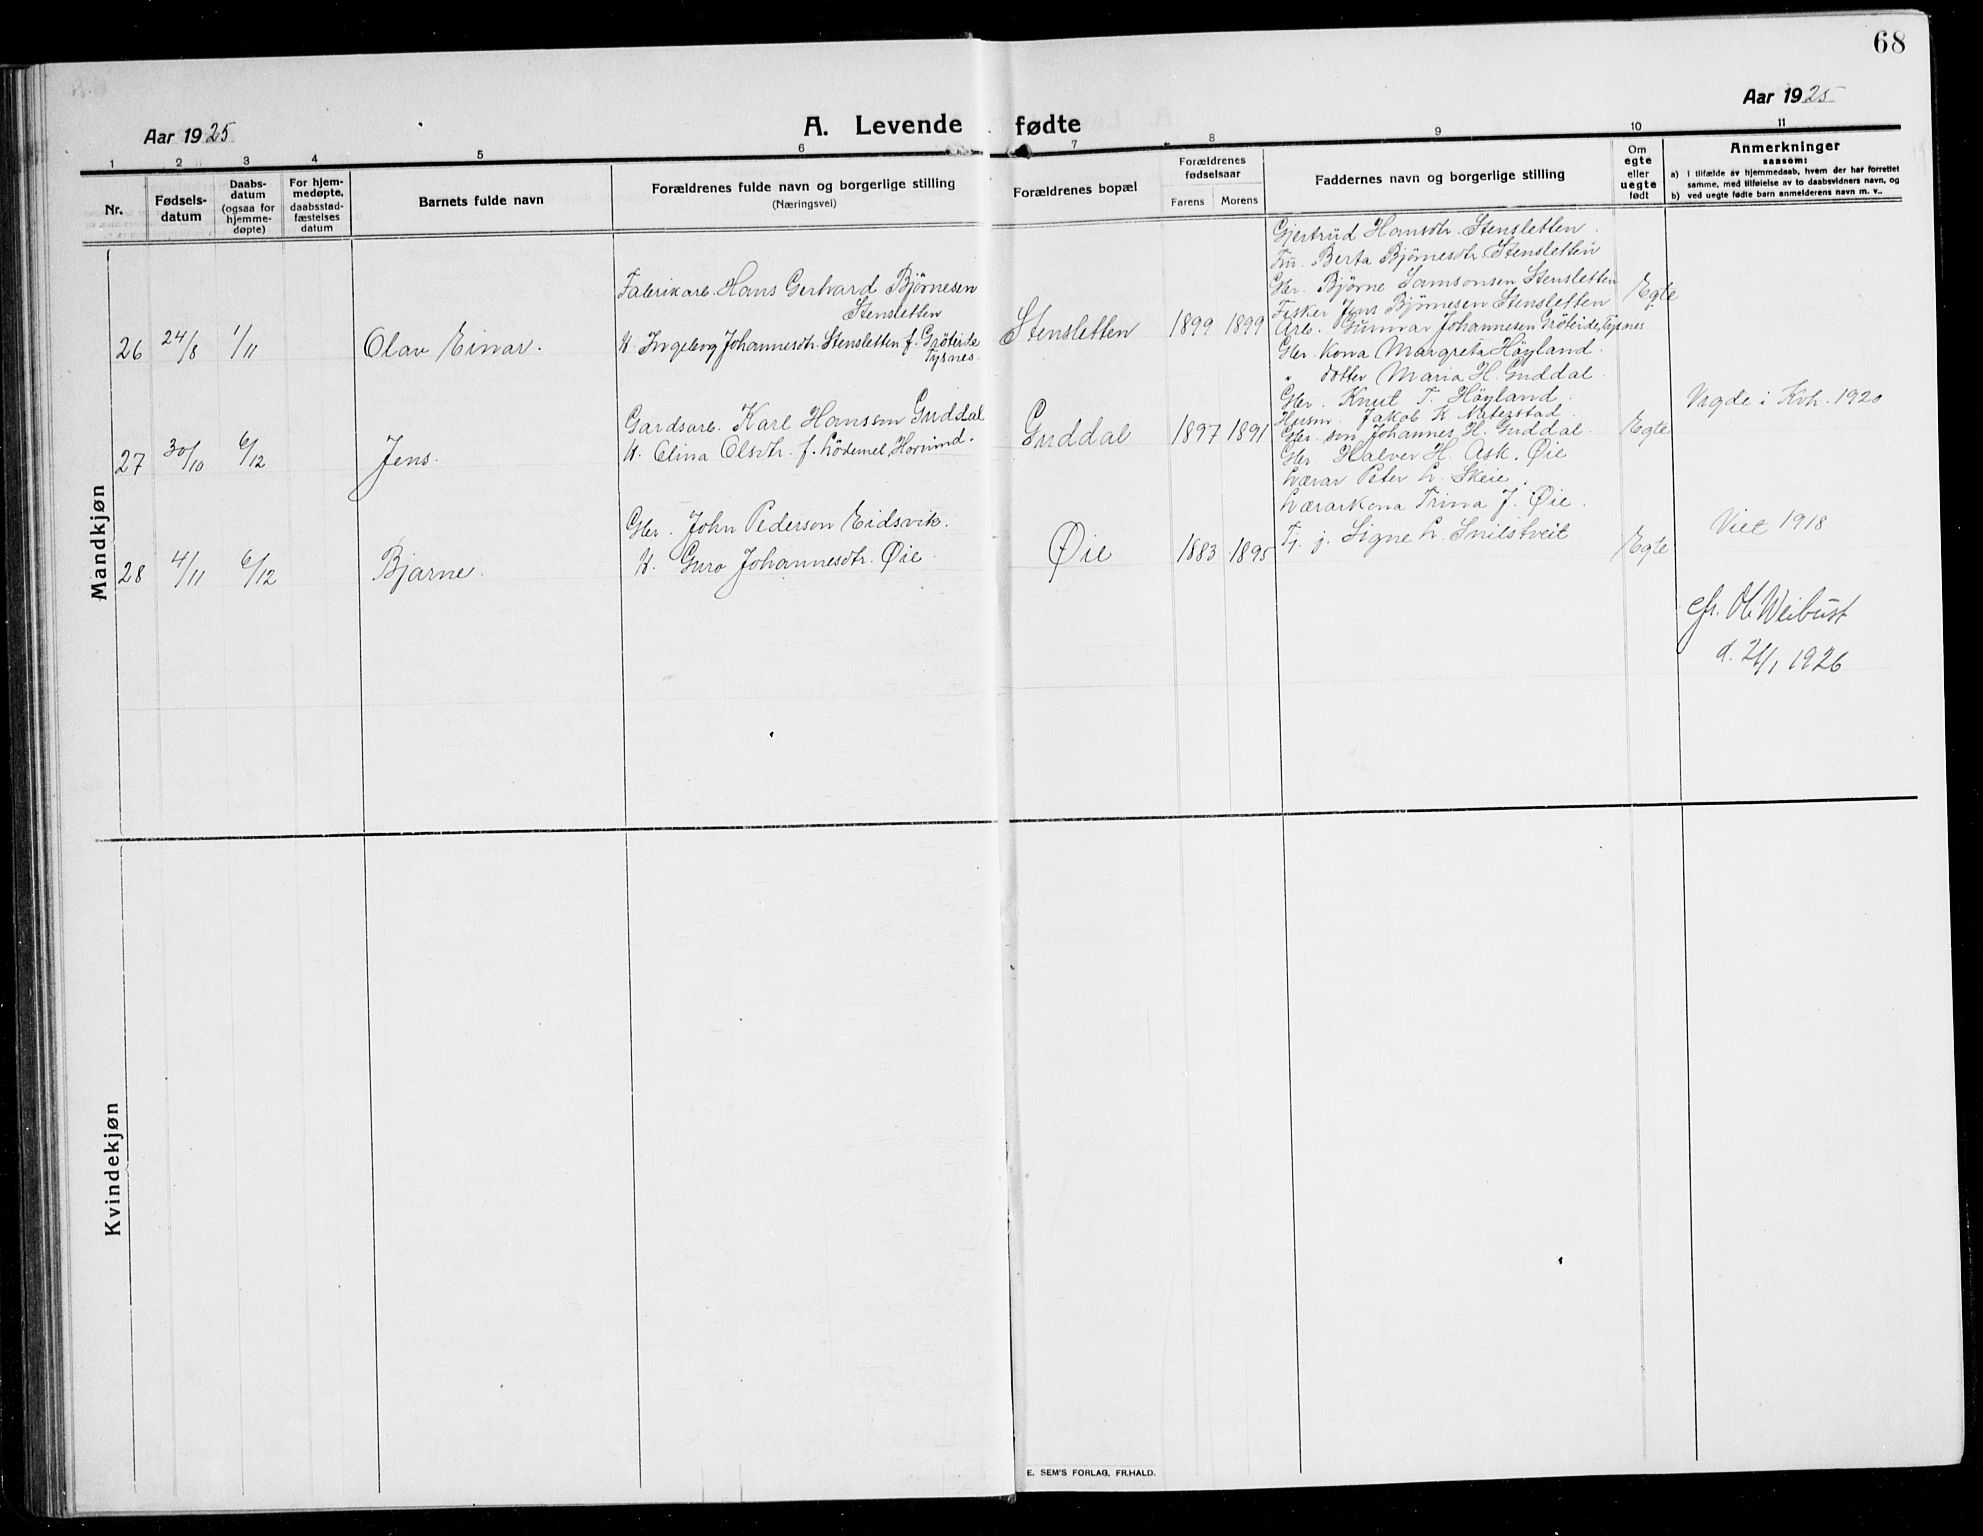 68
Aar 1925
A. Levende fødte
Aar 1925
1 2 3 4 5 6 7 8 9 10 11
Nr.
Fødsels-
datum
Daabs-
datum
(ogsaa for
hjemme-
døpte)
For hjem-
medøpte,
daabsstad-
fæstelses
datum
Barnets fulde navn
Forældrenes fulde navn og borgerlige stilling
(Næringsvei)
Forældrenes bopæl
Forældrenes
fødselsaar
Farens Morens
Faddernes navn og borgerlige stilling
Om
egte
eller
uegte
født
Anmerkninger
saasom:
a) I tilfælde av hjemmedaab, hvem der har forrettet
samme, med tilføielse av to daabsvidners navn, og
b) ved uegte fødte barn anmelderens navn m. v..
Mandkjøn
26 24/8 1/11 Olav Einar.
Fabrikarb. Hans Gerhard Bjørnesen
Stensletten
H. Ingeborg Johannesdtr. Stensletten f. Grøteide
Tysnes.
Stensletten 1899 1899
Gjertrud Hansdtr. Stensletten.
Fru. Berta Bjørnesdtr. Stensletten
Gbr. Bjørne Samsonsen Stensletten
Fisker Jens Bjørnesen Stensletten
Arb. Gunnar Johannesen Grøteide, Tysnes
Egte
27 30/10 6/12 Jens.
Gardsarb. Karl Hansson Guddal
H. Elina Olsdtr. f. Lödemel, Hornind.
Guddal 1897 1891
Gbr. Kona Margreta Höyland.
" dotter Maria H. Guddal.
Gbr. Knut T. Höyland.
Husm. Jakob K. Naterstad.
Gbr. son Johannes H. Guddal.
Egte
Vigde i Kvh. 1920
28 4/11 6/12 Bjarne.
Gbr. John Pederson Eidsvik.
H. Guro Johannesdtr. Øie.
Øie 1883 1895
Gbr. Halver H. Ask. Øie
Lærar Peter L. Skeie.
Lærarkona Trina J. Øie.
Tj. j. Signe L. Snilstveit
Egte
Viet 1918
cfr. Ol. Weibust
d. 21/1 1926
Kvindekjøn
E. SEM'S FORLAG, FR.HALD.